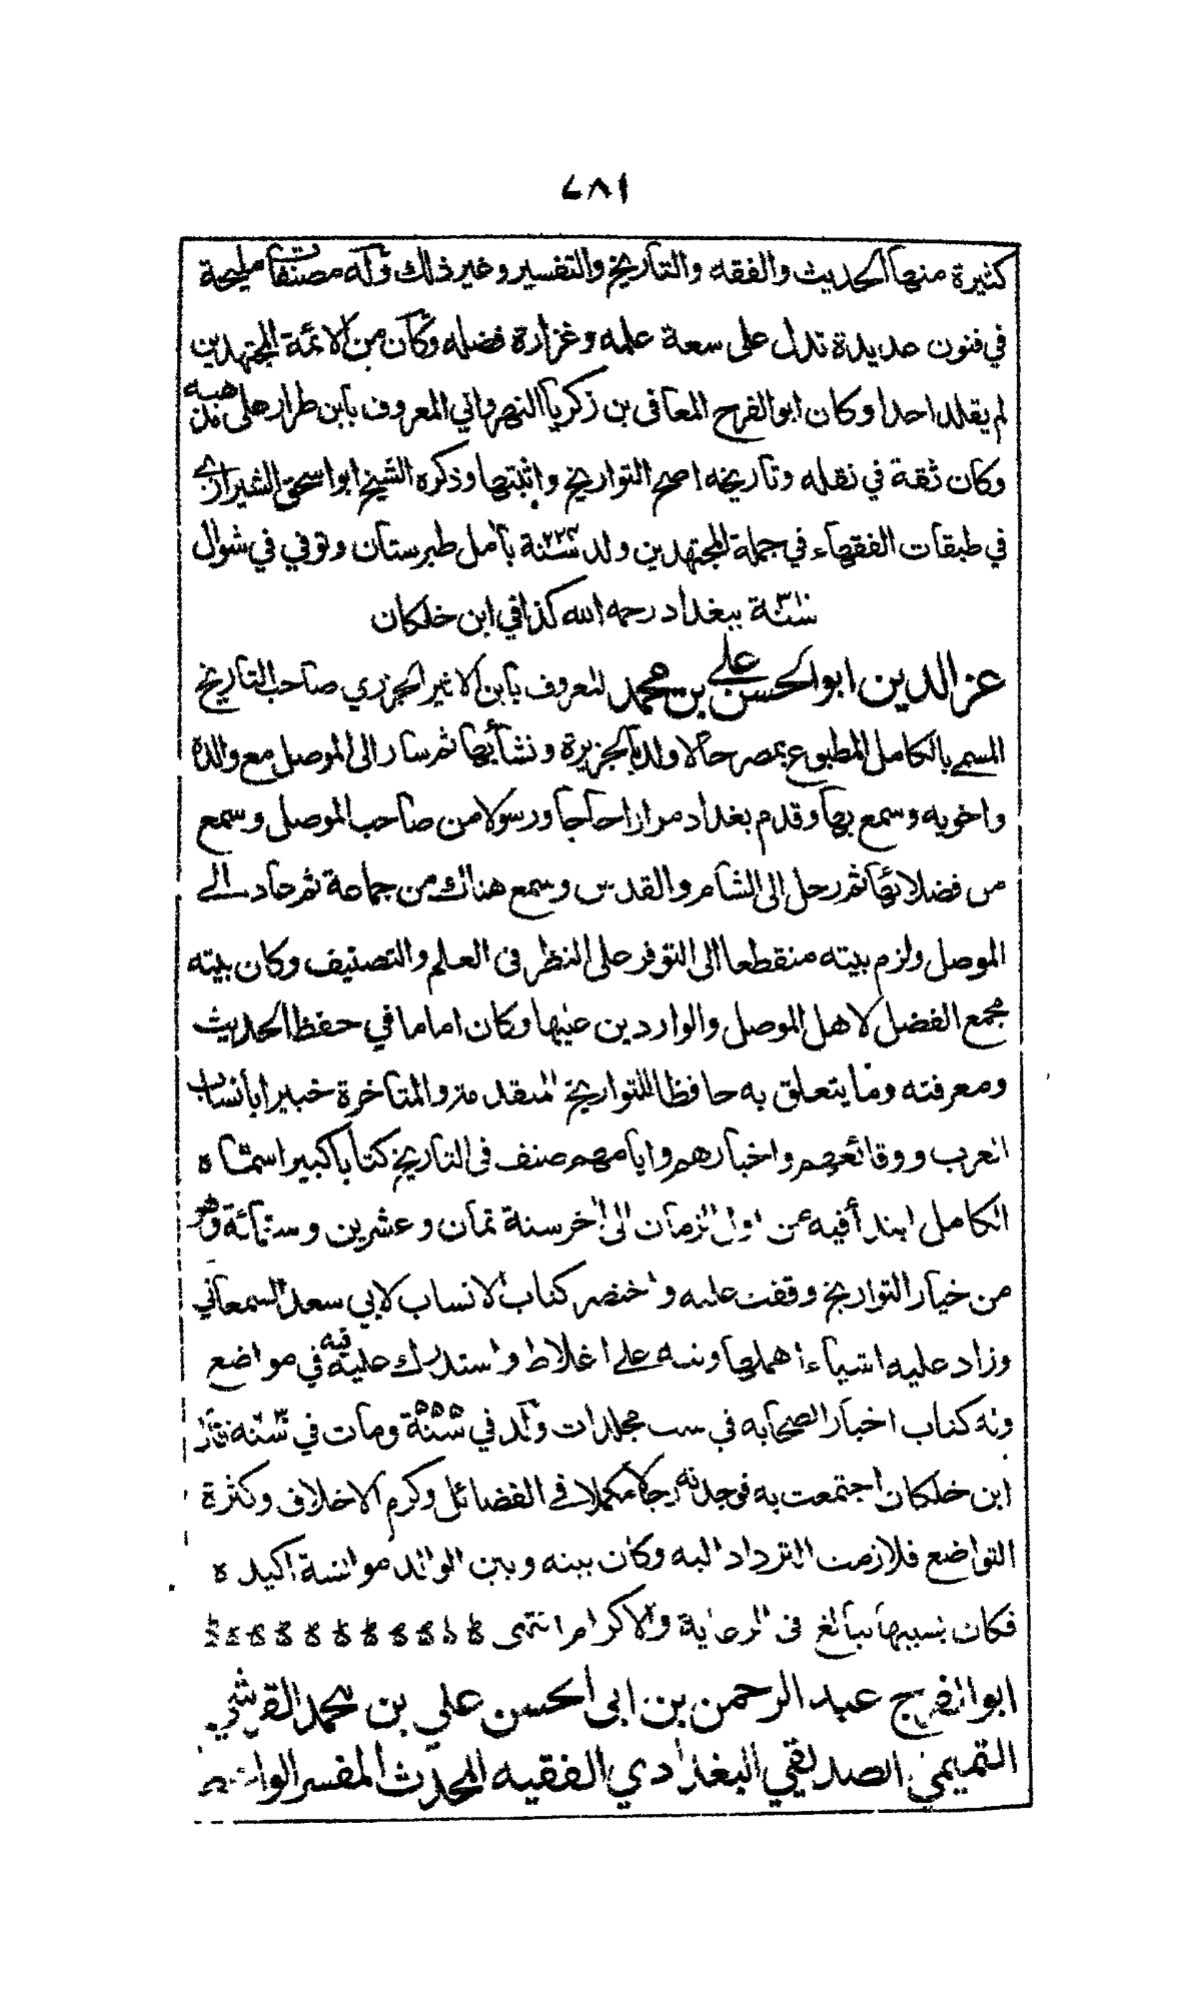 ٧٨١
كثيرة منها الحديث والفقه والتاريخ والتفسير وغير ذلك وله مصنفات مليحة
في فنون عديدة تدل على سعة علمه وغزارة فضله وكان من الائمة المجتهدين
لم يقلد احدا وكان ابو الفرج المعافى بن زكريا النهرواني المعروف بابن طرار على مذهبه
وكان ثقة في نقله وتاريخه اصح التواريخ واثبتها وذكره الشيخ ابو اسحق الشيرازي
في طبقات الفقهاء في جملة المجتهدين ولد سنة ٢٢٤ بآمل طبرستان وتوفي في شوال
سنة ٣١٠ ببغداد رحمه الله كذا في ابن خلكان
عز الدين ابو الحسن علي بن محمد المعروف بابن الاثير الجزري صاحب التاريخ
المسمى بالكامل المطبوع بمصر حالا ولد بالجزيرة ونشأ بها ثم سار الى الموصل مع والده
واخويه وسمع بها وقدم بغداد مرارا حاجا ورسولا من صاحب الموصل وسمع
من فضلائها ثم رحل الى الشام والقدس وسمع هناك من جماعة ثم عاد الى
الموصل ولزم بيته منقطعا الى التوفر على النظر في العلم والتصنيف وكان بيته
مجمع الفضل لاهل الموصل والواردين عليها وكان اماما في حفظ الحديث
ومعرفته وما يتعلق به حافظا للتواريخ المتقدمة والمتاخرة خبيرا بأنساب
العرب ووقائعهم واخبارهم وايامهم صنف في التاريخ كتابا كبيرا سماه
الكامل ابتدأ فيه من اول الزمان الى آخر سنة ثمان وعشرين وستمائة وهو
من خيار التواريخ وقفت عليه واختصر كتاب الانساب لابي سعد السمعاني
وزاد عليه اشياء اهملها ونبه على اغلاط واستدرك عليه فيه في مواضع
وله كتاب اخبار الصحابة في ست مجلدات ولد في سنة ٥٥٥ ومات في سنة ٦٣٠ قال
ابن خلكان اجتمعت به فوجدته رجلا مكملا في الفضائل وكرم الاخلاق وكثرة
التواضع فلازمت الترداد اليه وكان بينه وبين الوالد موانسة اكيدة
فكان بسببها يبالغ في الرعاية والاكرام انتهى
ابو الفرج عبد الرحمن بن ابي الحسن علي بن محمد القرشي
التميمي الصديقي البغدادي الفقيه المحدث المفسر الواعظ